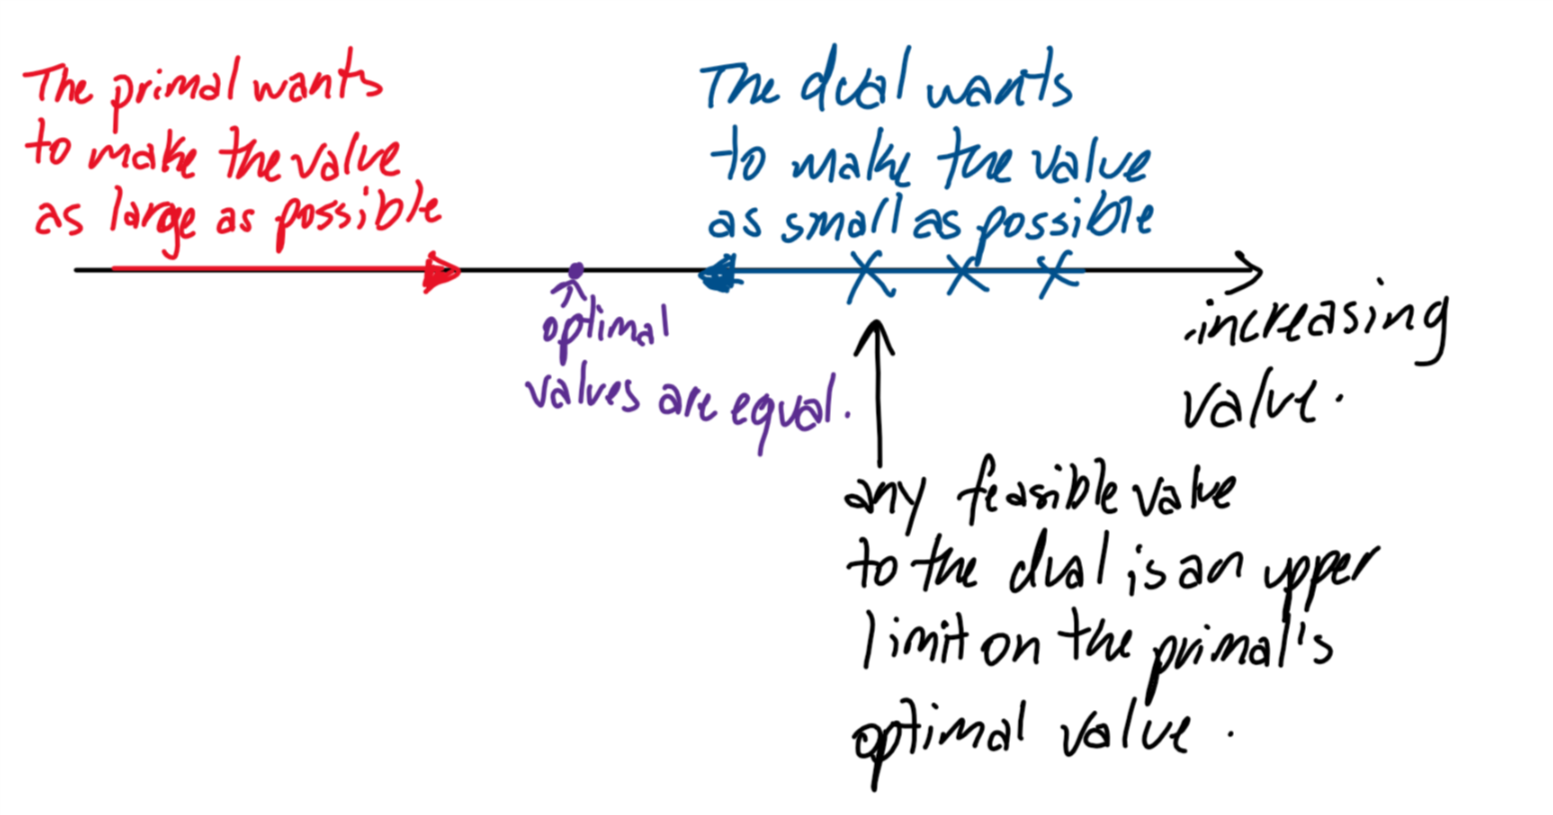 The primal wants
to make the value
as large as possible
The dual wants
to make the value
as small as possible
optimal
values are equal.
increasing
value.
any feasible value
to the dual is an upper
limit on the primal's
optimal value.